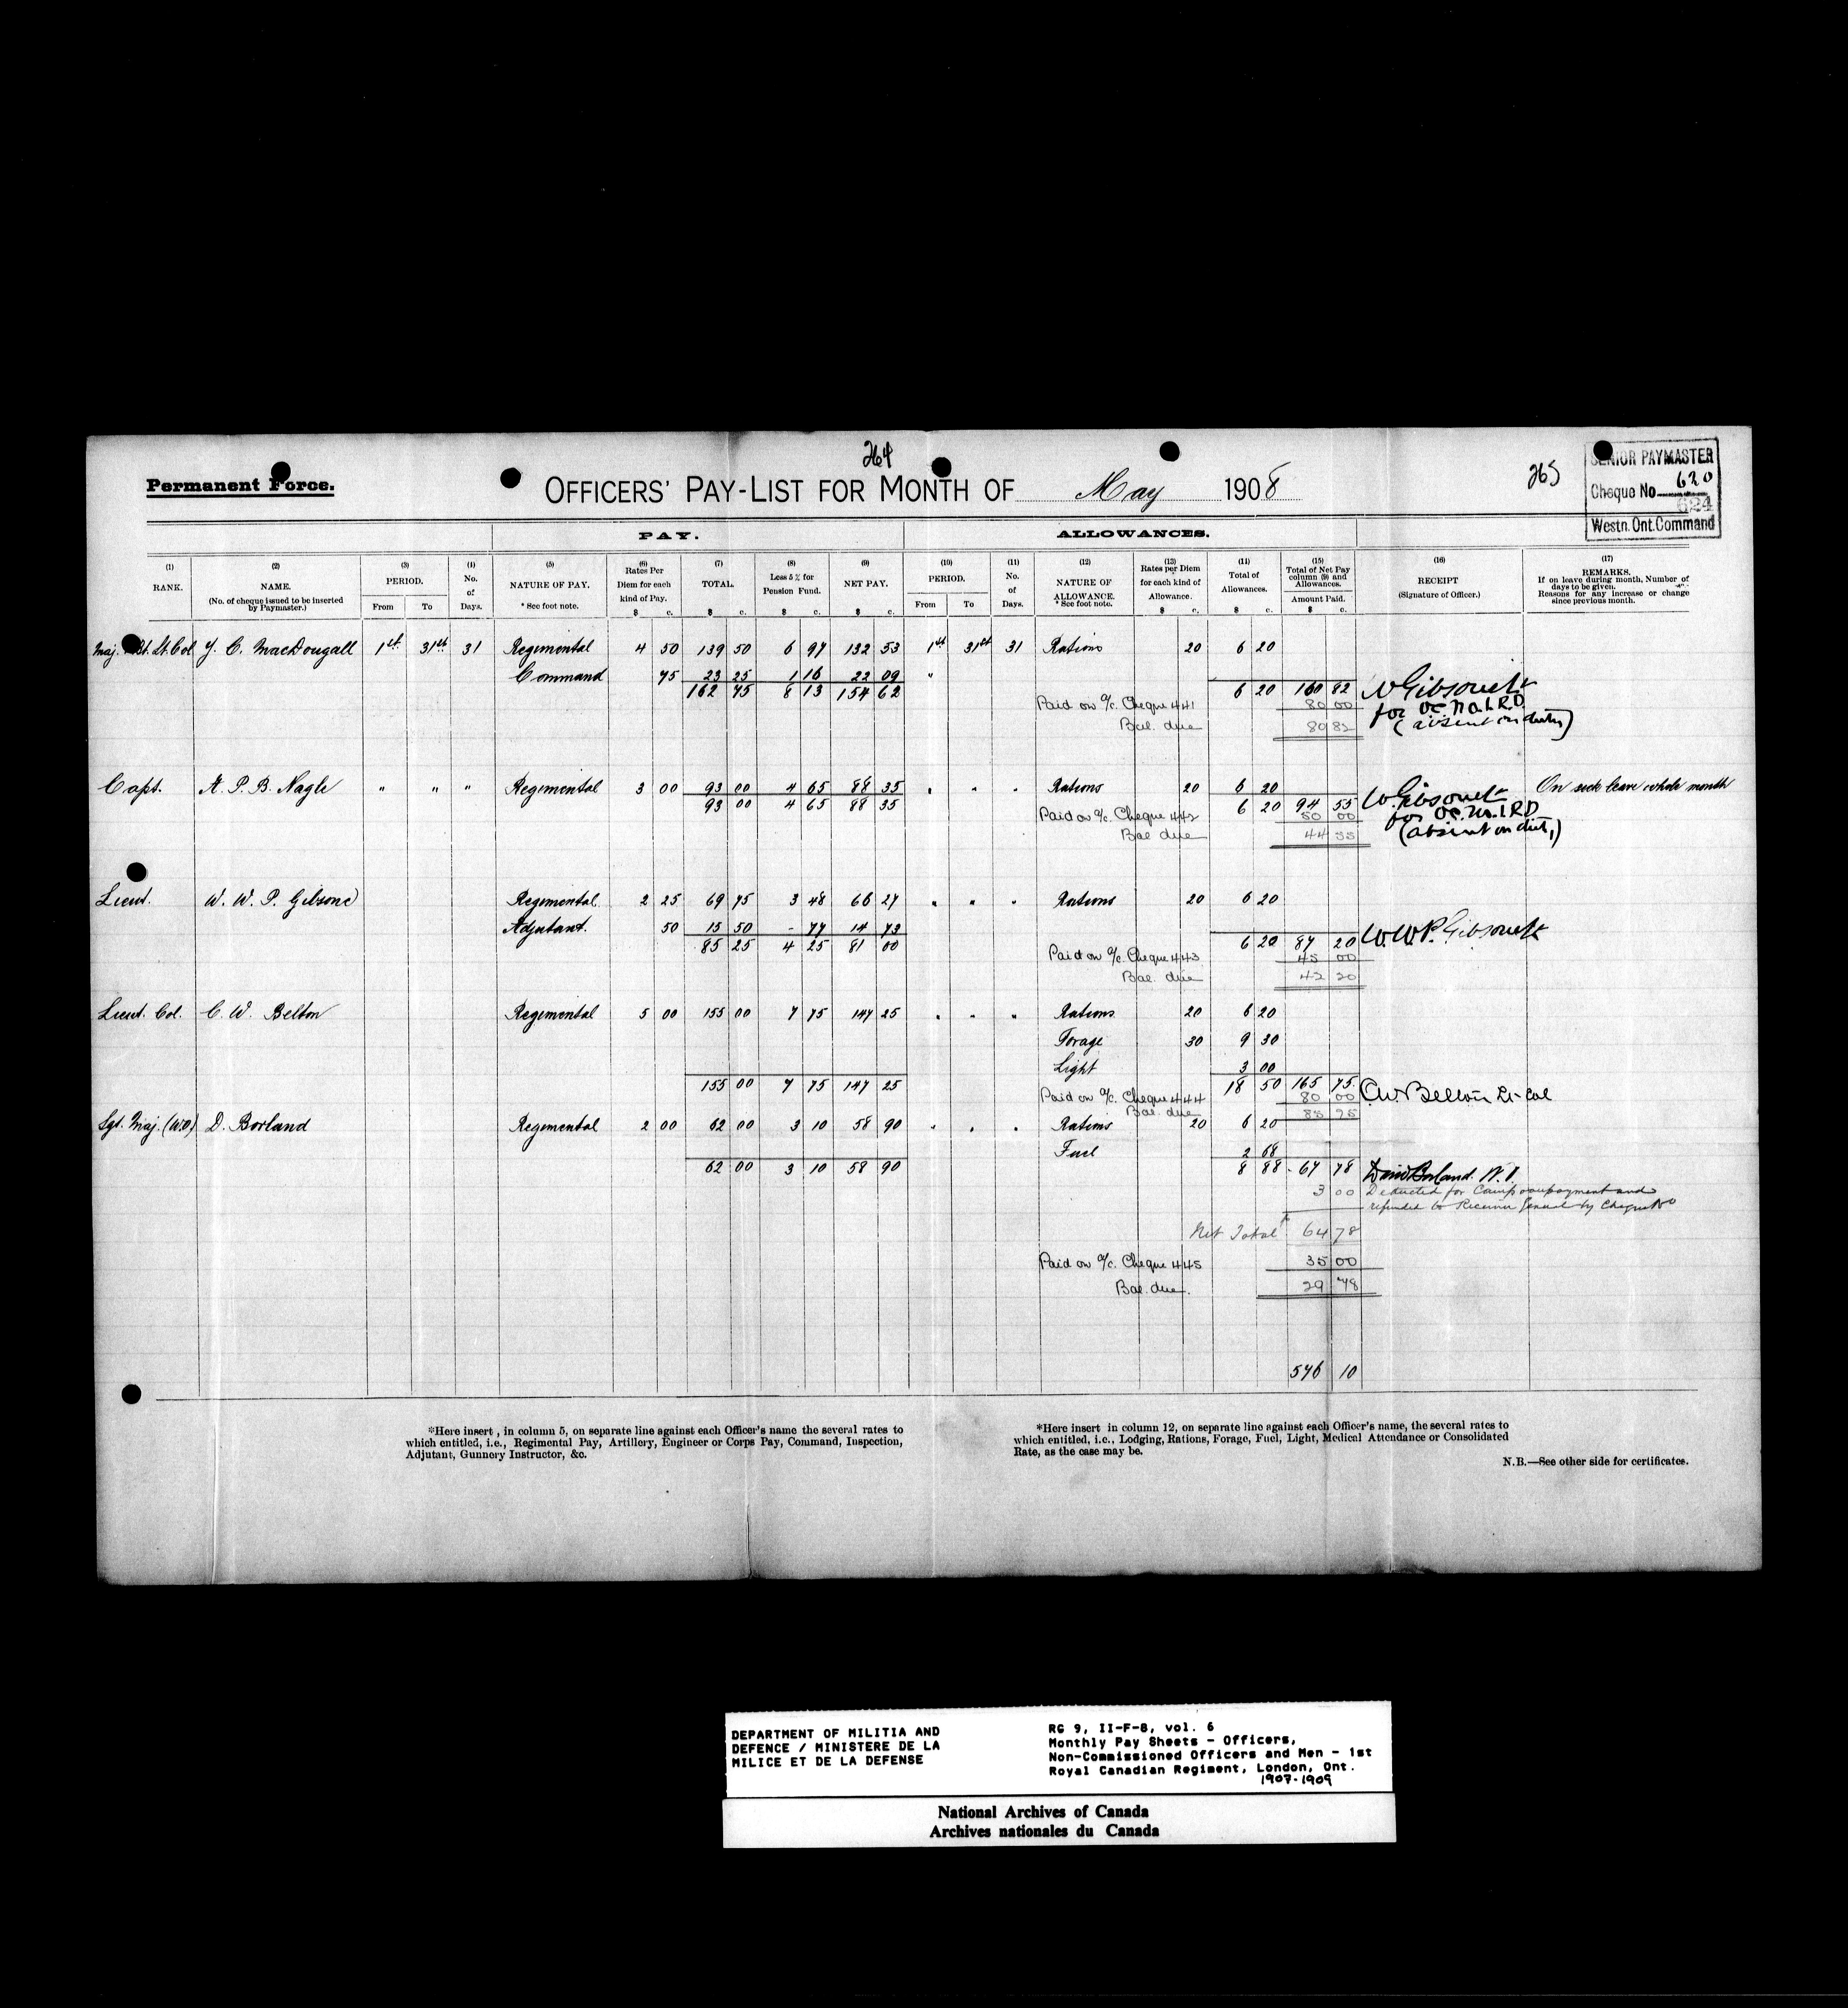 264
Permanent Force.
OFFICERS' PAY-LIST FOR MONTH OF May 1908
265
SENIOR PAYMASTER
Cheque No 620
624
Westn. Ont. Command
PAY. ALLOWANCES.
(1) RANK. (2) NAME. (No. of cheque issued to be inserted by Paymaster.) (3) PERIOD. From To (4) No. of Days. (5) NATURE OF PAY. * See foot note. (6) Rates Per Diem for each kind of Pay. $ c. (7) TOTAL. $ c. (8) Less 5% for Pension Fund. $ c. (9) NET PAY. $ c. (10) PERIOD. From To (11) No. of Days. (12) NATURE OF ALLOWANCE. * See foot note. (13) Rates per Diem for each kind of Allowance. $ c. (14) Total of Allowances. $ c. (15) Total of Net Pay column (9) and Allowances. Amount Paid. $ c. (16) RECEIPT (Signature of Officer.) (17) REMARKS. If on leave during month, Number of days to be given. Reasons for any increase or change since previous month.
Maj. Bt. Lt. Col J. C. MacDougall 1st 31st 31 Regimental 4 50 139 50 6 97 132 53 1st 31st 31 Rations 20 6 20
Command 75 23 25 1 16 22 09 "
162 75 8 13 154 62 6 20 160 82 W Gibsone Lt
Paid on a/c. Cheque 441 80 00 for OC No. 1 R.D.
Bal. due 80 82 (absent on duty)
Capt. H. P. B. Nagle " " " Regimental 3 00 93 00 4 65 88 35 " " " Rations 20 6 20 On sick leave whole month
93 00 4 65 88 35 6 20 94 55 W. Gibsone Lt
Paid on a/c. Cheque 442 50 00 for OC. No. 1 R.D.
Bal due 44 55 (absent on duty)
Lieut. W. W. P. Gibsone Regimental 2 25 69 75 3 48 66 27 " " " Rations 20 6 20
Adjutant. 50 15 50 - 77 14 73
85 25 4 25 81 00 6 20 87 20 W. W. P. Gibsone Lt
Paid on a/c. Cheque 443 45 00
Bal. due 42 20
Lieut. Col. C. W. Belton Regimental 5 00 155 00 7 75 147 25 " " " Rations 20 6 20
Forage 30 9 30
Light 3 00
155 00 7 75 147 25 18 50 165 75 C.W. Belton Lt-Col
Paid on a/c. Cheque 444 80 00
Bal. due 85 75
Sgt. Maj. (W.O) D. Borland Regimental 2 00 62 00 3 10 58 90 " " " Rations 20 6 20
Fuel 2 68
62 00 3 10 58 90 8 88 67 78 David Borland. W.O.
3 00 Deducted for Camp overpayment and
refunded to Receiver General by Cheque No
Net Total 64 78
Paid on a/c. Cheque 445 35 00
Bal. due. 29 78
576 10
*Here insert, in column 5, on separate line against each Officer's name the several rates to
which entitled, i.e., Regimental Pay, Artillery, Engineer or Corps Pay, Command, Inspection,
Adjutant, Gunnery Instructor, &c.
*Here insert in column 12, on separate line against each Officer's name, the several rates to
which entitled, i.e., Lodging, Rations, Forage, Fuel, Light, Medical Attendance or Consolidated
Rate, as the case may be.
N.B.—See other side for certificates.
DEPARTMENT OF MILITIA AND
DEFENCE / MINISTERE DE LA
MILICE ET DE LA DEFENSE
RG 9, II-F-8, vol. 6
Monthly Pay Sheets - Officers,
Non-Commissioned Officers and Men - 1st
Royal Canadian Regiment, London, Ont.
1907-1909
National Archives of Canada
Archives nationales du Canada